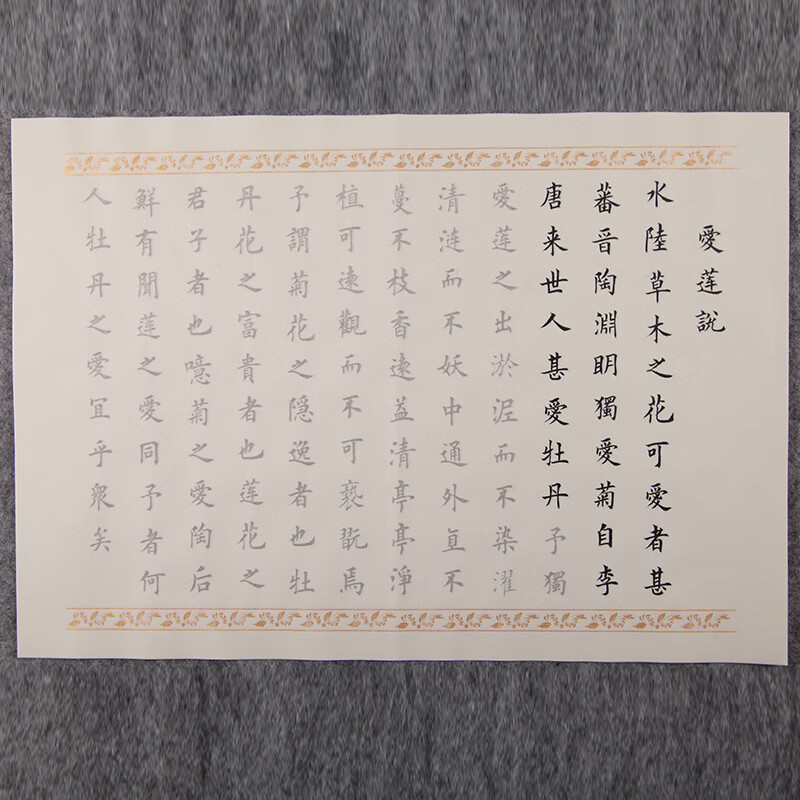 愛莲説
水陸草木之花可愛者甚
蕃晋陶淵明獨愛菊自李
唐来世人甚愛牡丹予獨
愛莲之出淤泥而不染濯
清涟而不妖中通外直不
蔓不枝香遠益清亭亭淨
植可遠觀而不可褻翫焉
予謂菊花之隱逸者也牡
丹花之富貴者也莲花之
君子者也噫菊之愛陶后
鮮有聞莲之愛同予者何
人牡丹之愛宜乎衆矣